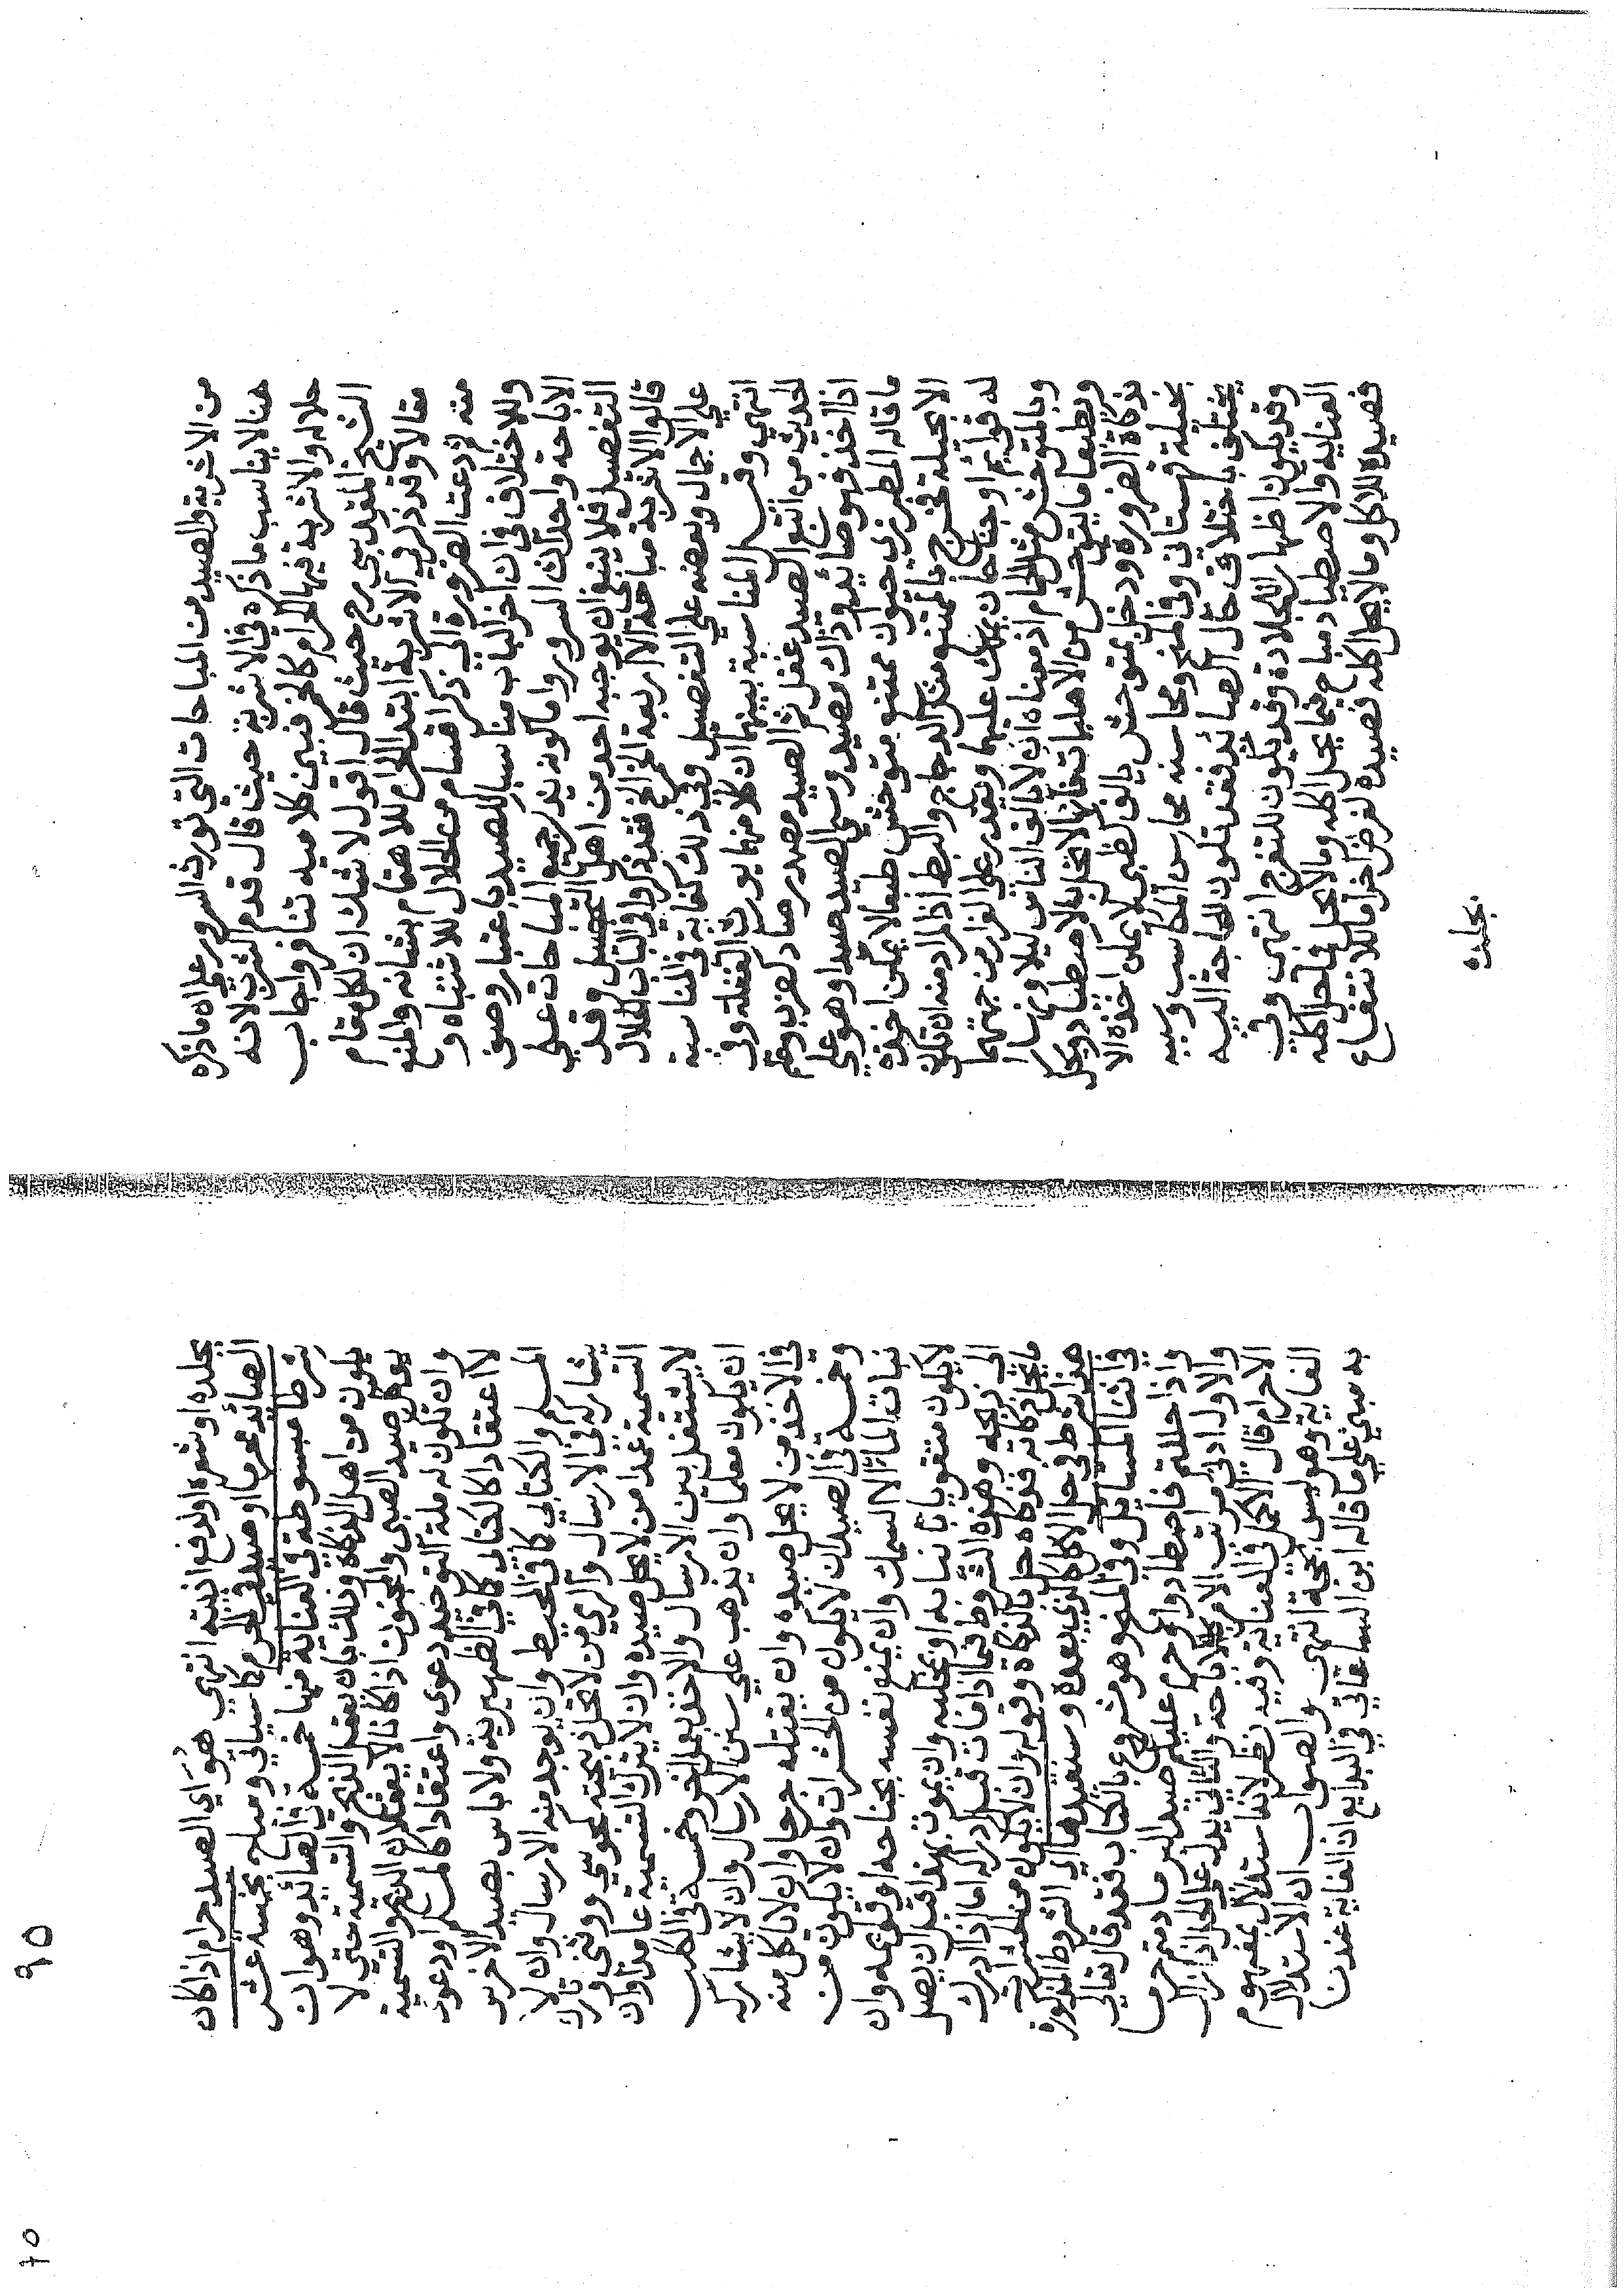 من الاشربة والصيد من المباحات التي تورث السرور علي ما ذكره
هنا لا يناسب ما ذكره في الاشربة حيث قال قدم الشرب لانه
حلاله والاشربة فيها الحرام كالخمر فبين كلاميه تنافر واجاب
الشيخ المقدسي رح حيث قال اقول لا شك ان لكل مقام
مقالا وقد ذكر في الاشربة ابتدا الحرام للاهتمام بشانه والمنع
منه ثم دعت الضرورة الي ذكر اقسام من الحلال للاشتباه و
وللاختلاف في ان اخر الباب مناسبا للصيد باعتبار وصف
الاباحة واحداث السرور واما كونه يذكر جميع المباحات علي
التفصيل فلا ينبغي ان يوجبه احد من اهل التحصيل وقد
قالوا الاشربة مباحة الا اربعة الخ فقد ذكروا في الباب الحلال
علي الاجمال وبعضه علي التفصيل وفي ذلك كفاية في المناسبة
انتهي وقيل المناسبة بينهما ان كلا منهما يورث الغفلة وفي
الحديث من اتبع الصيد غفل ثم الصيد مصدر صاد كضرب وعلم
اذا اخذ فهو صائد وذاك مصيد وسمي المصيد صيدا وهو علي
ما قاله المطرزي حيوان ممتنع متوحش طبعا لا يمكن اخذه
الا بحيلة فخرج بالممتنع مثل الدجاج والبط اذ المراد منه ان تكون
له قوائم او جناحان يملك عليهما ويقدر علي الفرار من جهتهما
وبالمتوحش مثل الحمام اذ معناه ان لا يالف الناس ليلا ونهارا
وبطبعا ما يتوحش من الاهليات فانها لا تحل بالاصطياد ويحل
بذكاة الضرورة ودخل متوحش يالف كظبي لا يمكن اخذه الا
بحيلة قهستاني وفي المنح ومحاسنه محاسن المكاسب وسببه
يختلف باختلاف حال الصائد فقد تكون الحاجة اليه
وقد يكون اظهار الجلادة وقد يكون للتفرج انتهي وفي
العناية والاصطياد مباح فيما يحل اكله وما لا يحل فما حل اكله
فصيده للاكل وما لا يحل اكله فصيده لغرض اخر اما للانتفاع
بجلده
بجلده او شعره او لدفع اذيته انتهي هو اي الصيد حرام اذا كان
الصائد محرما او صيد في الحرم كما سياتي ومباح بخمسة عشر
شرطا مبسوطة في العناية منها خمسة في الصائد وهو ان
يكون من اهل الذكاة وذلك بان يعقل الذبح والتسمية حتي لا
يؤكل صيد الصبي والمجنون اذا كانا لا يعقلان الذبح والتسمية
وان تكون له ملة التوحيد دعوي واعتقادا كالمسلم او دعوي
لا اعتقادا كالكتابي كما في الظهيرية ولا باس بصيد الاخرس
المسلم والكتابي كما في المحيط وان يوجد منه الارسال وان لا
يشاركه في الارسال والرمي من لا تحل ذبيحته كمجوسي ووثني وتارك
التسمية عمدا من لا يحل صيده وان لا يترك التسمية عامدا وان
لا يشتغل بين الارسال والاخذ بعمل اخر وخمسة في الكلب
ان يكون معلما وان يذهب علي سنن الارسال وان لا يشاركه
في الاخذ من لا يحل صيده وان يقتله جرحا وان لا ياكل منه
وخمسة في الصيد ان لا يكون من الحشرات وان لا يكون من
بنات الماء الا السمك وان يمنع نفسه بجناحه او قوائمه وان
لا يكون متقويا بانيابه او بمخلبه وان يموت بهذا قبل ان يصل
الي ذبحه وهذه الشروط فيما اذا مات قبل ادراكه اما اذا ادرك
ما يحل ذكاته فذكاه حل بالذكاة وقوله وان لا يكون من الحشرات
هذا شرط في حل الاكل كالذي بعده وسنعيدها اي الشروط المذكورة
في اثنا المسايل وفي المنح وهو مشروع بالكتاب فقد قال تعالي
واذا حللتم فاصطادوا وحرم عليكم صيد البر ما دمتم حرما
والاول ادني مراتب الامر الاباحة والثاني يدل علي الحل اذا زال
الاحرام قال الاكمل في العناية وفيه نظر لانه استدلال بمفهوم
الغاية وهو ليس بحجة انتهي والصواب ان الاستدلال
به مبني علي ما قاله ابن الساعاتي في البدايع ان الغاية عندنا
٩٥
٥٦